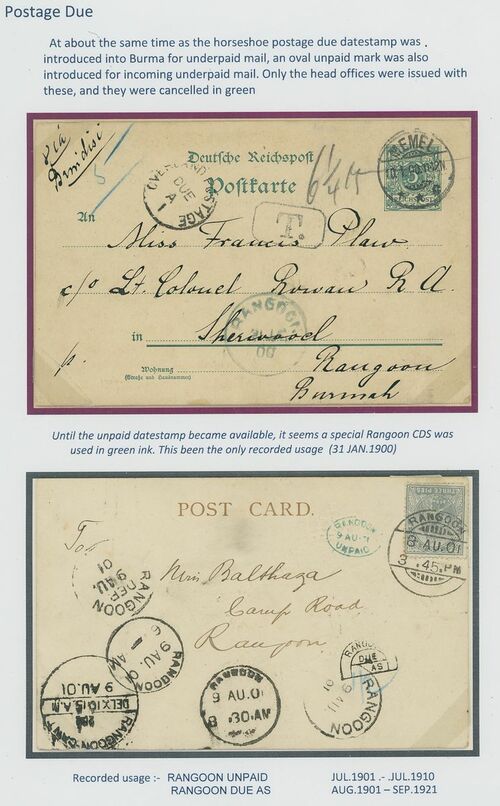 Postage Due
At about the same time as the horseshoe postage due datestamp was
introduced into Burma for underpaid mail, an oval unpaid mark was also
introduced for incoming underpaid mail. Only the head offices were issued with
these, and they were cancelled in green
Via
Brindisi
5
OVERLAND POSTAGE
DUE
A
1
Deutsche Reichspost
Postkarte
MEMEL
REICHSPOST
T.
An
Miss Francis Plaw
c/o Lt. Colonel Rowan R A.
RANGOON
00
in Sherwood
Wohnung
(Straße und Hausnummer)
Rangoon
Burmah
Until the unpaid datestamp became available, it seems a special Rangoon CDS was
used in green ink. This been the only recorded usage (31 JAN.1900)
POST CARD.
THREE PIES
RANGOON
8 AU.01
3 .45.PM
RANGOON
9 AU.01
UNPAID
To
RANGOON
DEP
9 AU.
01
Miss Balthaza
Camp Road
Rangoon
RANGOON
9 AU. 01
6 AM
RANGOON
DUE
AS
RANGOON
9 AU
01
9 AU.01
DELX10.15.A.M
RANGOON CANT
RANGOON
9 AU.01
8 .30.AM
Recorded usage :- RANGOON UNPAID JUL.1901 .- .JUL.1910
RANGOON DUE AS AUG.1901 – SEP.1921